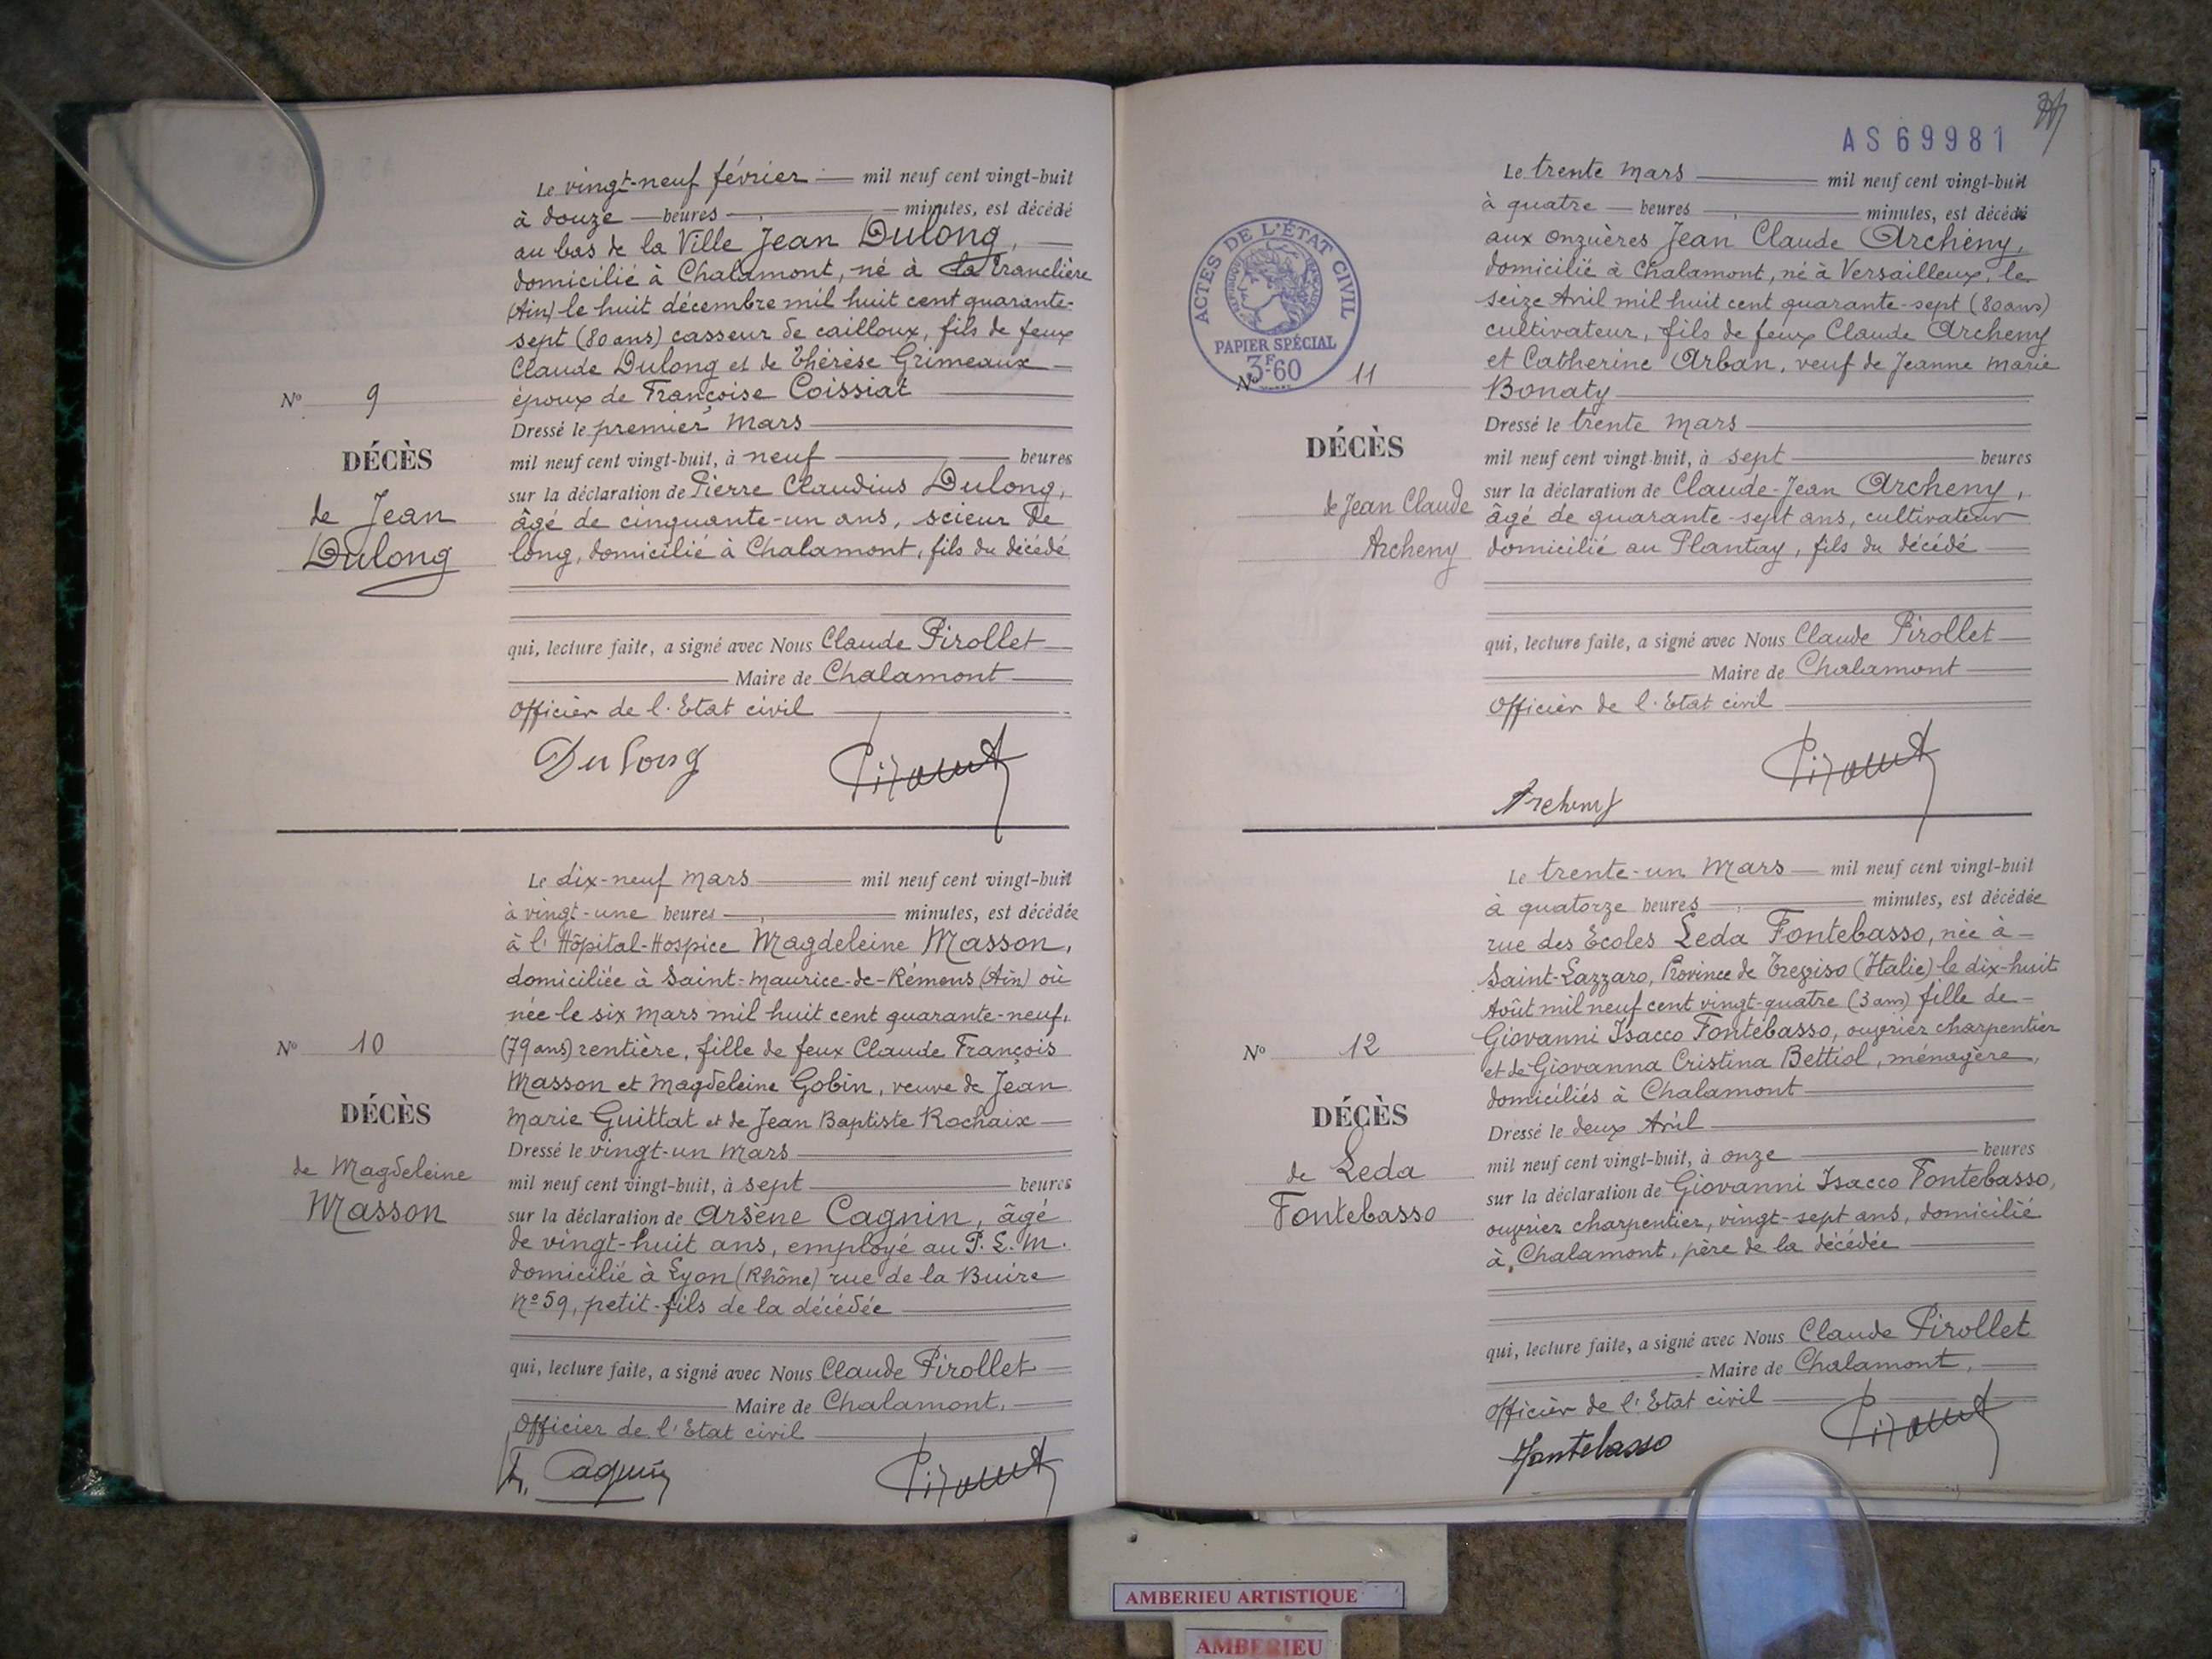 Le vingt-neuf février mil neuf cent vingt-huit
à douze heures minutes, est décédé
au bas de la Ville Jean Dulong,
domicilié à Chalamont, né à la Tranclière
(Ain) le huit décembre mil huit cent quarante-
sept (80 ans) casseur de cailloux, fils de feux
Claude Dulong et de Thérèse Grimeaux
époux de Françoise Coissiat
Dressé le premier Mars
mil neuf cent vingt-huit, à neuf heures
sur la déclaration de Pierre Claudius Dulong,
âgé de cinquante-un ans, scieur de
long, domicilié à Chalamont, fils du décédé
qui, lecture faite, a signé avec Nous Claude Pirollet
Maire de Chalamont
Officier de l'Etat civil
Dulong Pirollet
N° 9
DÉCÈS
de Jean
Dulong
Le dix-neuf Mars mil neuf cent vingt-huit
à vingt-une heures minutes, est décédée
à l'Hôpital-Hospice Magdeleine Masson,
domiciliée à Saint-Maurice-de-Rémens (Ain) où
née le six Mars mil huit cent quarante-neuf,
(79 ans) rentière, fille de feux Claude François
Masson et Magdeleine Gobin, veuve de Jean
Marie Guittat et de Jean Baptiste Rochaix
Dressé le vingt-un Mars
mil neuf cent vingt-huit, à sept heures
sur la déclaration de Arsène Cagnin, âgé
de vingt-huit ans, employé au P. L. M.
domicilié à Lyon (Rhône) rue de la Buire
N° 59, petit-fils de la décédée
qui, lecture faite, a signé avec Nous Claude Pirollet
Maire de Chalamont,
Officier de l'Etat civil
Cagnin Pirollet
N° 10
DÉCÈS
de Magdeleine
Masson
AS 69981
Le trente Mars mil neuf cent vingt-huit
à quatre heures minutes, est décédé
aux Onzuères Jean Claude Archeny,
domicilié à Chalamont, né à Versailleux, le
seize Avril mil huit cent quarante-sept (80 ans)
cultivateur, fils de feux Claude Archeny
et Catherine Arban, veuf de Jeanne Marie
Bonaty
Dressé le trente Mars
mil neuf cent vingt-huit, à sept heures
sur la déclaration de Claude-Jean Archeny,
âgé de quarante-sept ans, cultivateur
domicilié au Plantay, fils du décédé
qui, lecture faite, a signé avec Nous Claude Pirollet
Maire de Chalamont
Officier de l'Etat civil
Archeny Pirollet
ACTES DE L'ÉTAT CIVIL
PAPIER SPÉCIAL
3F60
N° 11
DÉCÈS
de Jean Claude
Archeny
Le trente-un Mars mil neuf cent vingt-huit
à quatorze heures minutes, est décédée
rue des Ecoles Leda Fontebasso, née à
Saint-Lazzaro, Province de Treviso (Italie) le dix-huit
Août mil neuf cent vingt-quatre (3 ans) fille de
Giovanni Isacco Fontebasso, ouvrier charpentier
et de Giovanna Cristina Bettiol, ménagère,
domiciliés à Chalamont
Dressé le deux Avril
mil neuf cent vingt-huit, à onze heures
sur la déclaration de Giovanni Isacco Fontebasso,
ouvrier charpentier, vingt-sept ans, domicilié
à Chalamont, père de la décédée
qui, lecture faite, a signé avec Nous Claude Pirollet
Maire de Chalamont,
Officier de l'Etat civil
Fontebasso Pirollet
N° 12
DÉCÈS
de Leda
Fontebasso
AMBERIEU ARTISTIQUE
AMBERIEU